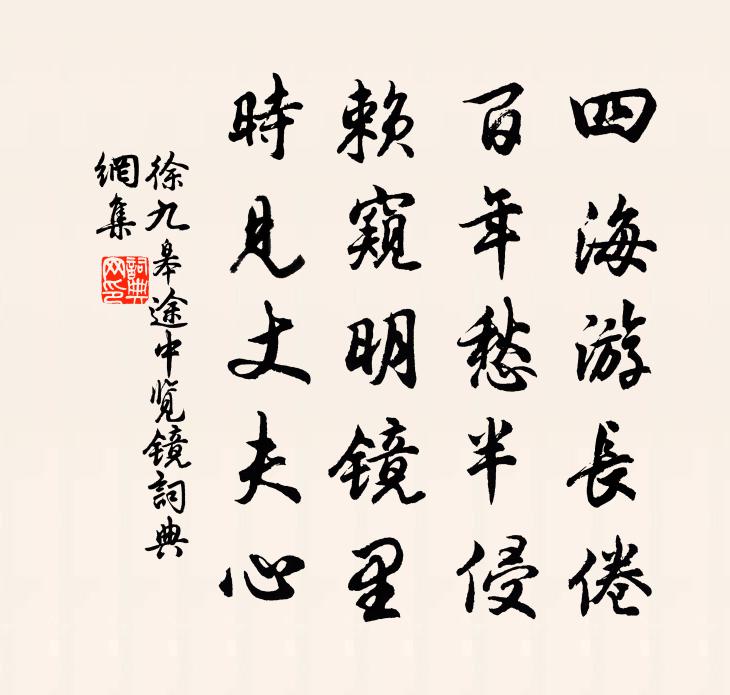 四海游長倦
百年愁半侵
赖窥明镜里
時見丈夫心
徐九皋途中览镜詞典
網集
詞典
网印